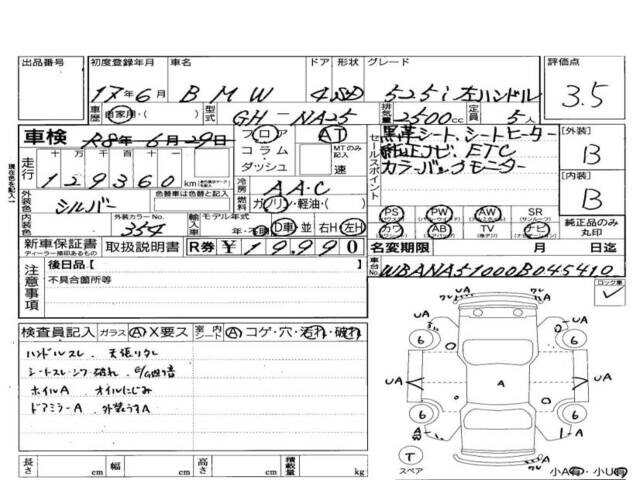 出品番号 初度登録年月 車名 ドア 形状 グレード 評価点
17年6月 BMW 4SD 525i 左ハンドル 3.5
車歴 自家用・( ) 型式 GH-NA25 排気量 2500cc 定員 5人
車検 R8年6月29日 フロア コラム・ダッシュ AT MTのみ記入 速
セールスポイント 黒革シート、シートヒーター
純正ナビ、ETC
カラーバックモーター
[外装] B
[内装] B
走行 十万 万 千 百 十 一
129360 km
冷房 AAC
燃料 ガソリン・軽油・( )
外装色 シルバー 色替車は色替と記入
内装色 外装カラーNo. 354
輸入車 モデル年式 年・不明 D車 並 右H 左H
PS PW AW SR (サンルーフ)
カワ AB TV ナビ
純正品のみ丸印
新車保証書 ディーラー捺印あるもの 取扱説明書 R券 ¥19,990 名変期限 月 日迄
注意事項 後日品【 】
不具合箇所等
車台No. WBANA51000B045410
ロック車
検査員記入 ガラス A X要ス 室内シート A コゲ・穴・汚れ・破れ
ハンドルスレ、天張りタレ
シートスレ・シワ破れ
ホイルA オイルにじみ
ドアミラーA 外装うすA
UA UA
6 6
UA A UA
6 6
A
T スペア
小A有・小U有
長さ cm 幅 cm 高さ cm 積載量 kg
現在色を記入